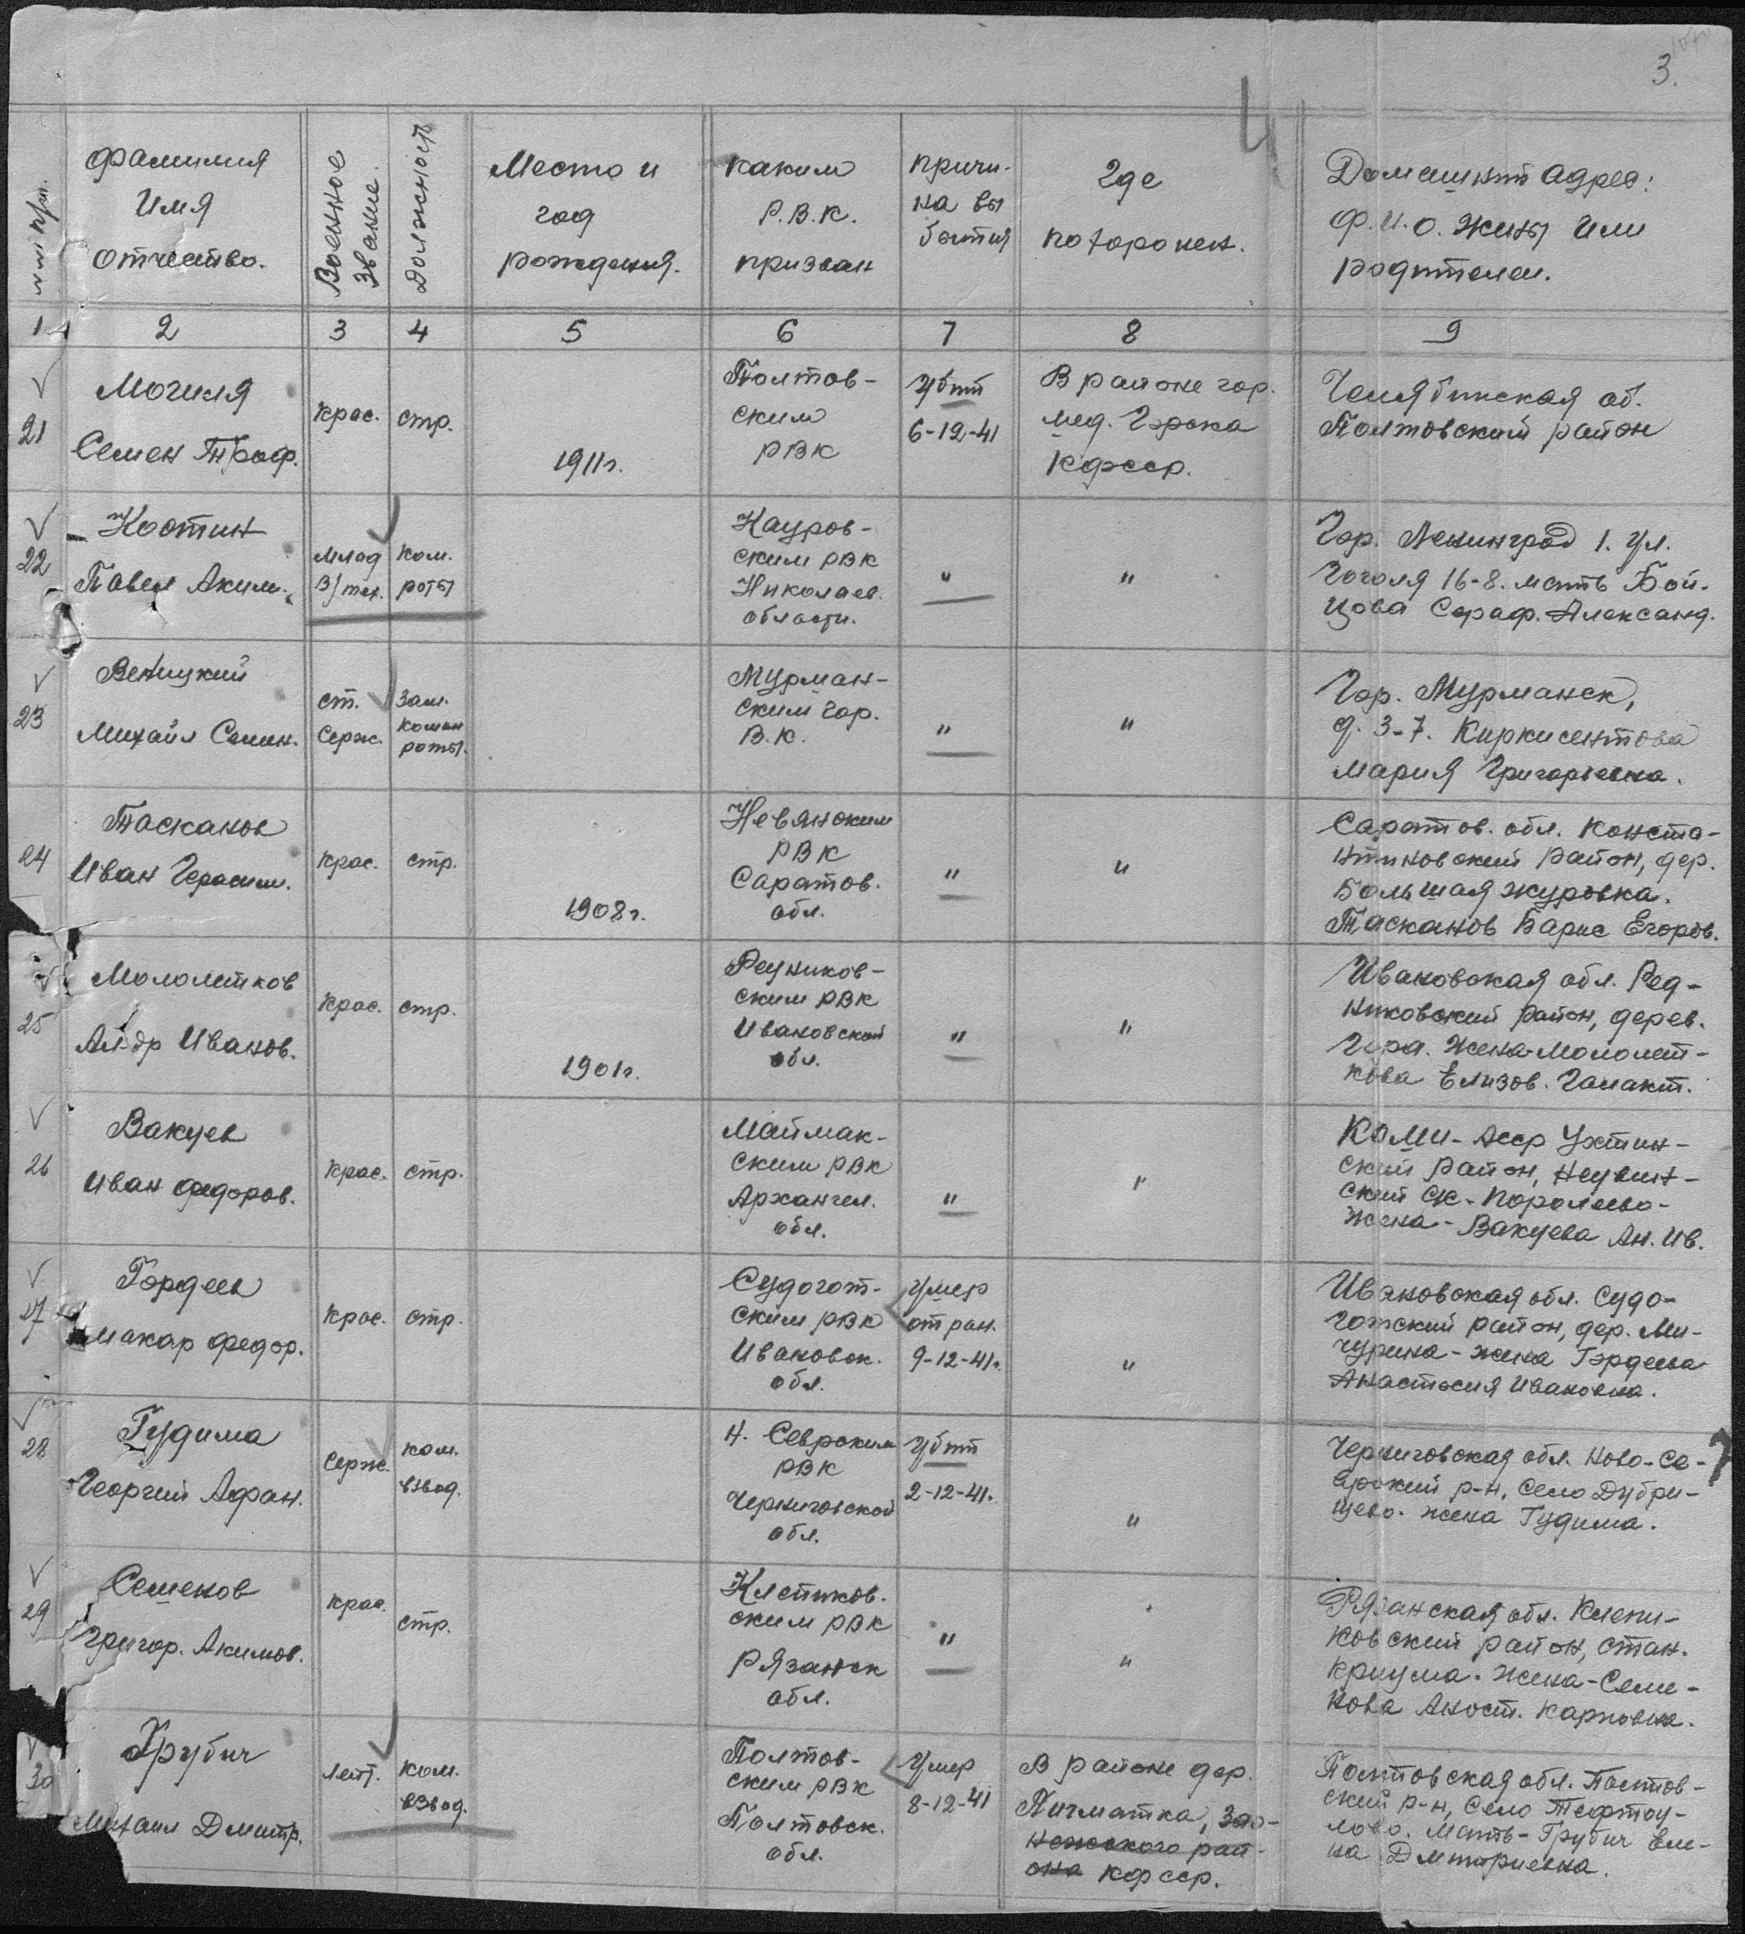 3.
Фамилия
Имя
Отчество.
Военное
звание.
Должность
Место и
год
рождения.
каким
Р.В.К.
призван
причи-
на вы
бытия
где
похоронен.
Домашний адрес:
Ф.И.О. жены или
родителей.
1 2 3 4 5 6 7 8 9
21
Могиля
Семен Троф.
крас.
стр.
1911г.
Полтов-
ским
РВК
Убит
6-12-41
В районе гор.
мед. Горка
Кфсср.
Челябинская об.
Полтовский район
22
Костин
Павел Аким.
млад
в/тех.
ком.
роты
Кауров-
ским РВК
Николаев.
области.
"
"
Гор. Ленинград 1. ул.
Гоголя 16-8. мать Бой-
цова Сераф. Александ.
23
Веницкий
Михаил Семен.
ст.
серж.
зам.
коман
роты.
Мурман-
ским гор.
В.К.
"
"
Гор. Мурманск,
д. 3-7. Киркисентова
Мария Григорьевна.
24
Тасканов
Иван Герасим.
крас.
стр.
1908г.
Невянским
РВК
Саратов.
обл.
"
"
Саратов. обл. Конста-
нтиновский район, дер.
Большая журовка.
Тасканов Барис Егоров.
25
Мололетков
Ал-др Иванов.
крас.
стр.
1901г.
Реуников-
ским РВК
Ивановской
обл.
"
"
Ивановская обл. Ред-
никовский район, дерев.
Гора. Жена-Мололет-
кова Елизов. Галакт.
26
Вакуев
Иван Федоров.
крас.
стр.
Маймак-
ским РВК
Архангел.
обл.
"
"
Коми-Асср Ухтин-
ский район,
жена-Вакуева Ан. Ив.
27
Гордеев
Макар Федор.
крас.
стр.
Судогот-
ским РВК
Ивановск.
обл.
умер
от ран.
9-12-41г.
"
Ивановская обл. Судо-
гожский район, дер. Ми-
чурина-жена Гордеева
Анастасия Ивановна.
28
Гудима
Георгий Афан.
серж.
ком.
взвод.
Н. Северским
РВК
Черниговской
обл.
убит
2-12-41.
"
Черниговская обл. Ново-Се-
верский р-н, село Дубри-
щево. жена Гудима.
29
Семенов
Григор. Акимов.
крас.
стр.
Клепиков.
ским РВК
Рязанск
обл.
"
"
Рязанская обл. Клепи-
ковский район, стан.
Криуша. жена-Семе-
нова Анаст. Карповна.
30
Грубич
Михаил Дмитр.
лейт.
ком.
взвод.
Полтов-
ским РВК
Полтовск.
обл.
Умер
8-12-41
В районе дер.
Пигматка, Зао-
нежского рай-
она кфсср.
Полтовская обл. Полтов-
ский р-н, село
мать-Грубич Еле-
на Дмитриевна.